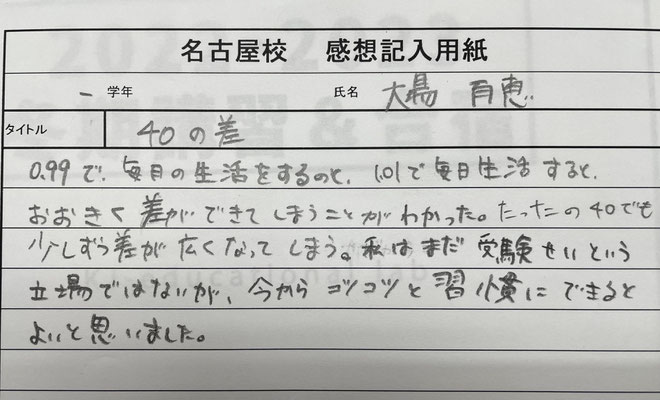 名古屋校 感想記入用紙
一 学年 氏名 大場 百恵
タイトル 40の差
0.99で、毎月の生活をするのと、1.01で毎日生活すると、
おおきく差ができてしまうことがわかった。たったの40でも
少しずつ差が広くなってしまう。私はまだ受験せいという
立場ではないが、今からコツコツと習慣にできると
よいと思いました。